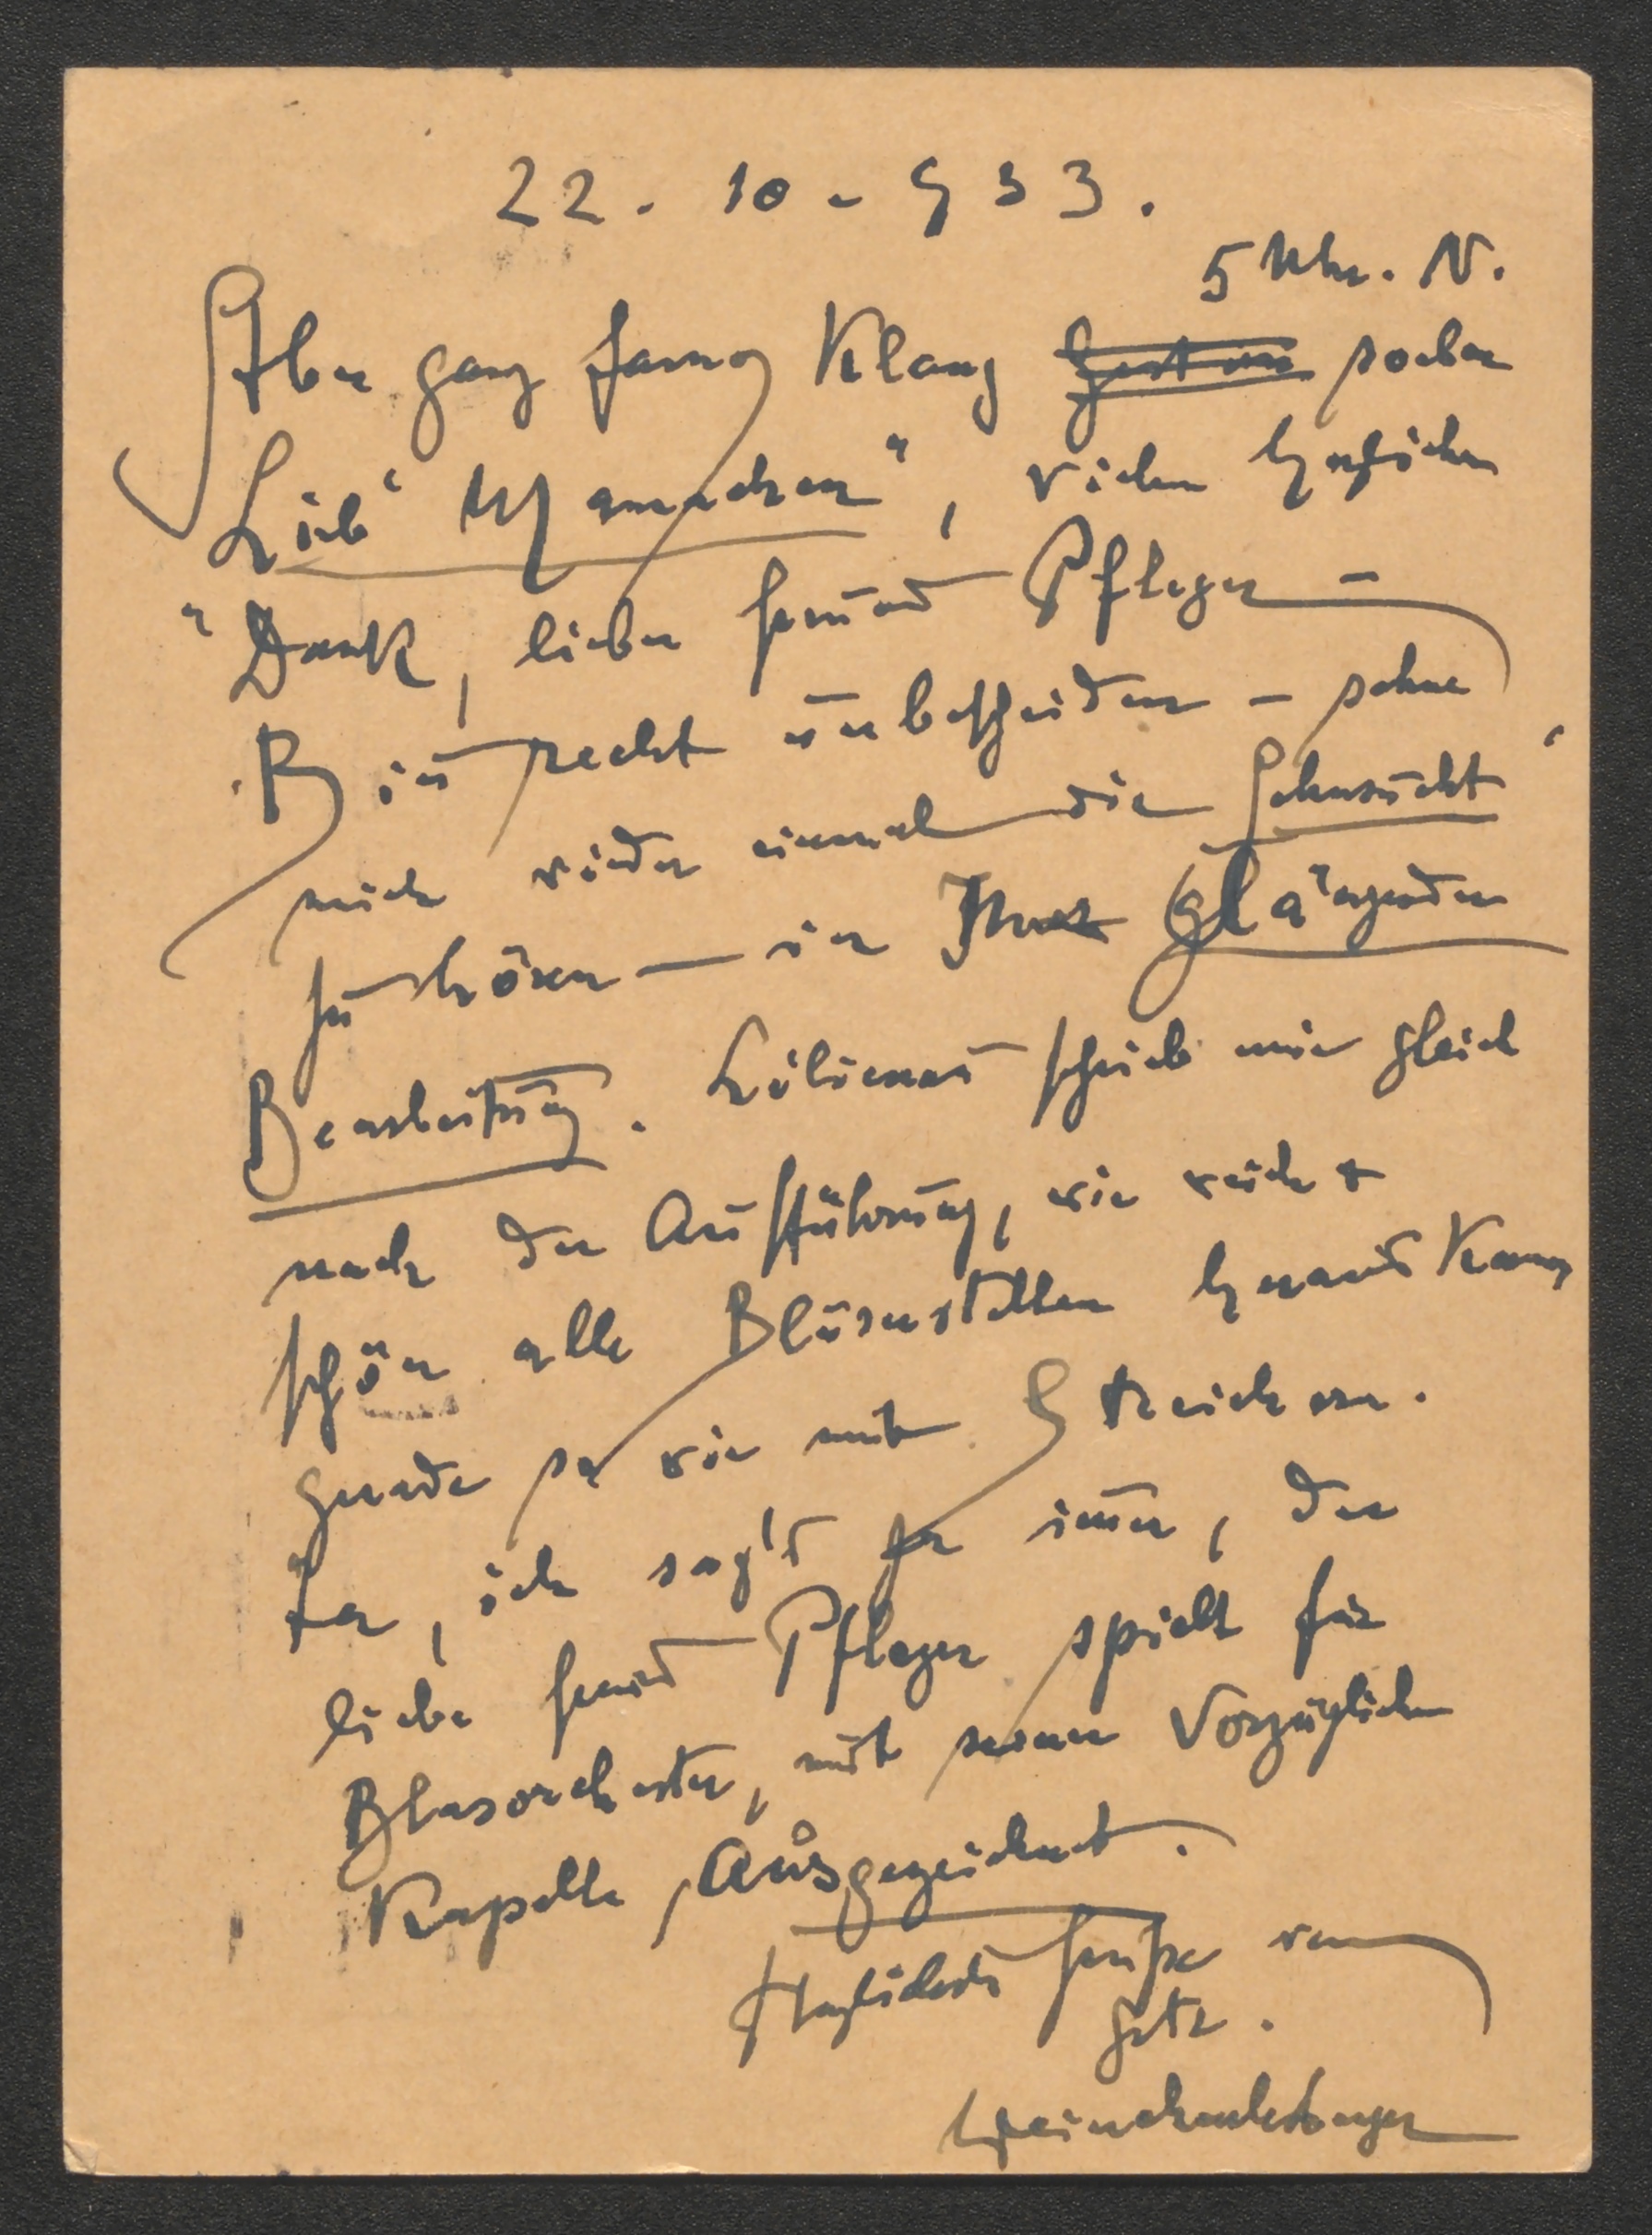 22. 10 - 933.
5 Uhr. N.
Aber ganz famos Klang soeben
Lieb' Mamachen", vielen herzlichen
Dank, lieber Freund Pfleger -
Bin recht unbescheiden - sehne
mich wieder einmal die Sehnsucht"
zu hören - in Ihrer glänzenden
Bearbeitung. Lilienau schrieb mir gleich
nach der Aufführung, wie reich +
schön alle Bläserstellen heraus kamen
gerade so wie mit Streichern.
Ja, ich sag's ja immer, der
liebe Freund Pfleger spielt für
Blasorchester, mit seiner Vorzüglichen
Kapelle, Ausgezeichnet.
Herzlichste Grüße von